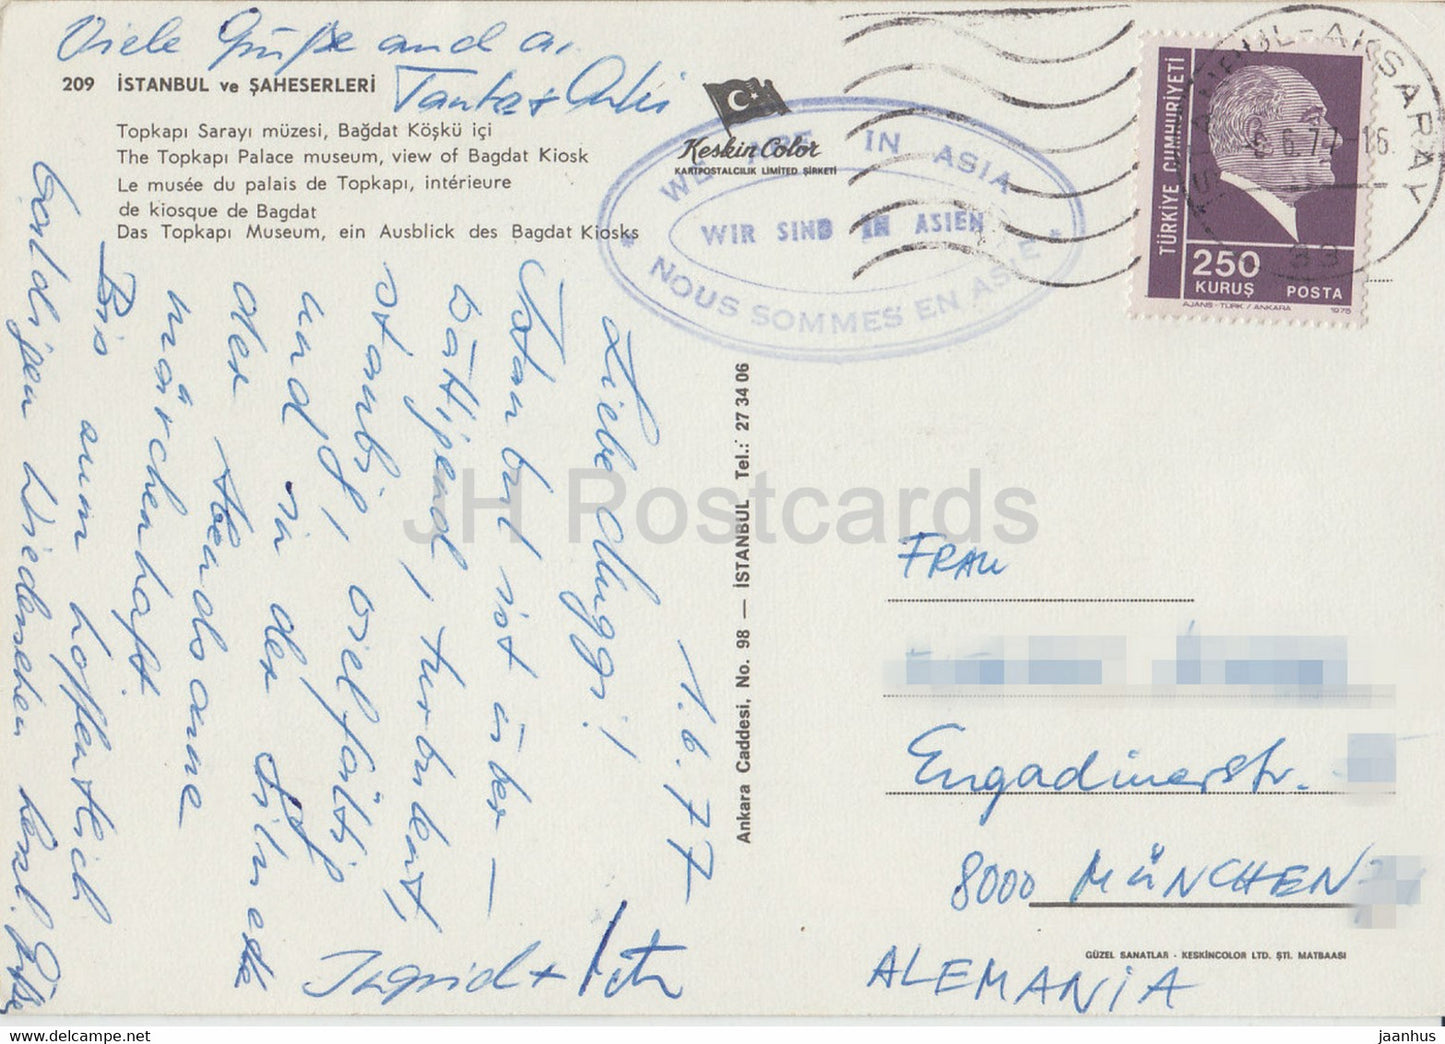 Viele Grüße and a.
Tante + Onki
209 İSTANBUL ve ŞAHESERLERİ
Topkapı Sarayı müzesi, Bağdat Köşkü içi
The Topkapı Palace museum, view of Bagdat Kiosk
Le musée du palais de Topkapı, intérieure
de kiosque de Bagdat
Das Topkapı Museum, ein Ausblick des Bagdat Kiosks
Keskin Color
KARTPOSTALCILIK LIMITED ŞİRKETİ
WE ARE IN ASIA
WIR SIND IN ASIEN
NOUS SOMMES EN ASIE
İSTANBUL-AKSARAY
6.6.77-16
TÜRKİYE CUMHURİYETİ
250
KURUŞ POSTA
AJANS-TÜRK / ANKARA 1975
1.6.77
Liebe
Istanbul ist über-
wältigend, turbulent,
staubig, vielfältig
und
der in der
der Abendsonne
märchenhaft
Bis zum hoffentlich
baldigen Wiedersehen herzl. Grüße
Ingrid +
Ankara Caddesi, No. 98 — İSTANBUL Tel.: 27 34 06
JH Postcards
FRAU
Engadinerstr.
8000 MÜNCHEN
ALEMANIA
GÜZEL SANATLAR - KESKİNCOLOR LTD. ŞTİ. MATBAASI
https://www.hippostcard.com/store/jaanhus
jaanhus